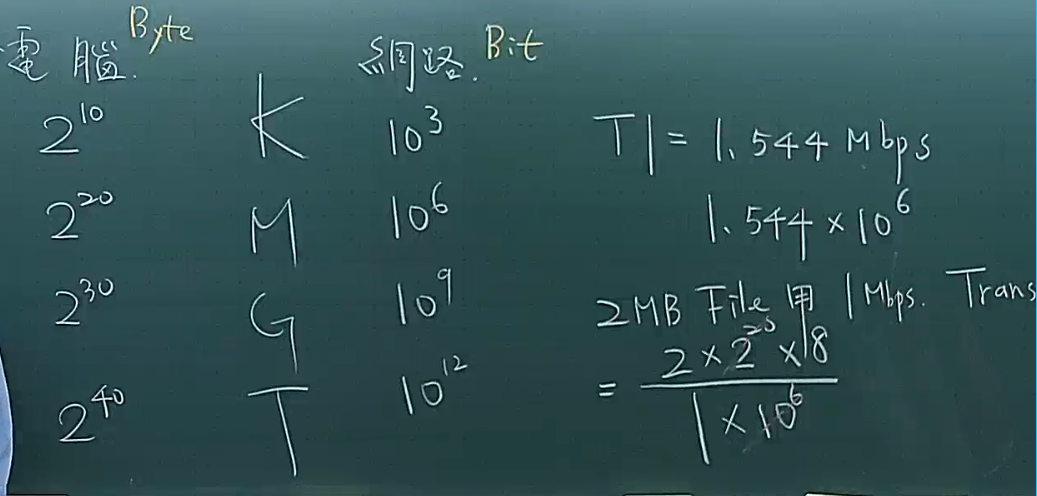 電腦. Byte 網路. Bit
2¹⁰ K 10³
2²⁰ M 10⁶
2³⁰ G 10⁹
2⁴⁰ T 10¹²
T1 = 1.544 Mbps
1.544 × 10⁶
2MB File 用 1 Mbps. Trans
= 2 × 2²⁰ × 8
1 × 10⁶